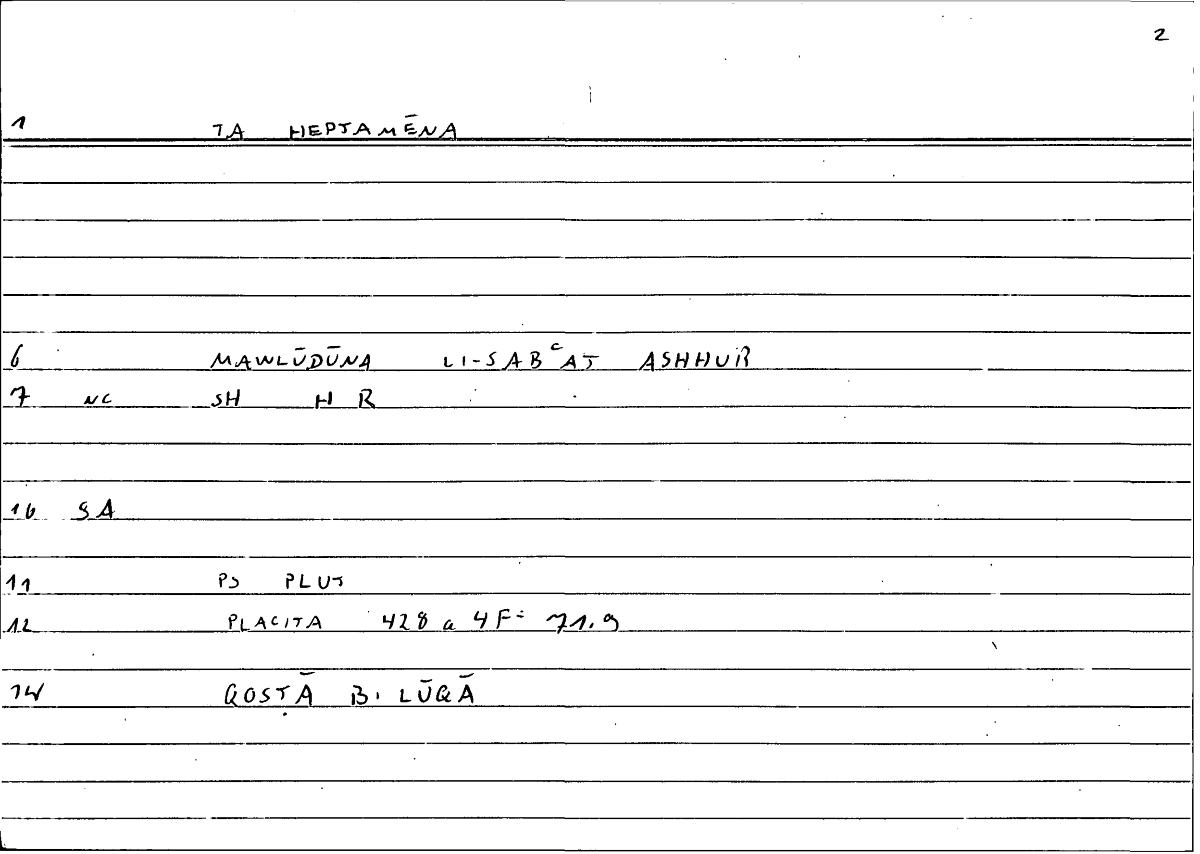 2
1 TA HEPTAMĒNA
6 MAWLŪDŪNA LI-SABᶜAT ASHHUR
7 NC SH H R
10 SA
11 PS PLUT
12 PLACITA 428 a 4 F = 71.9
14 QOSṬĀ B. LŪQĀ